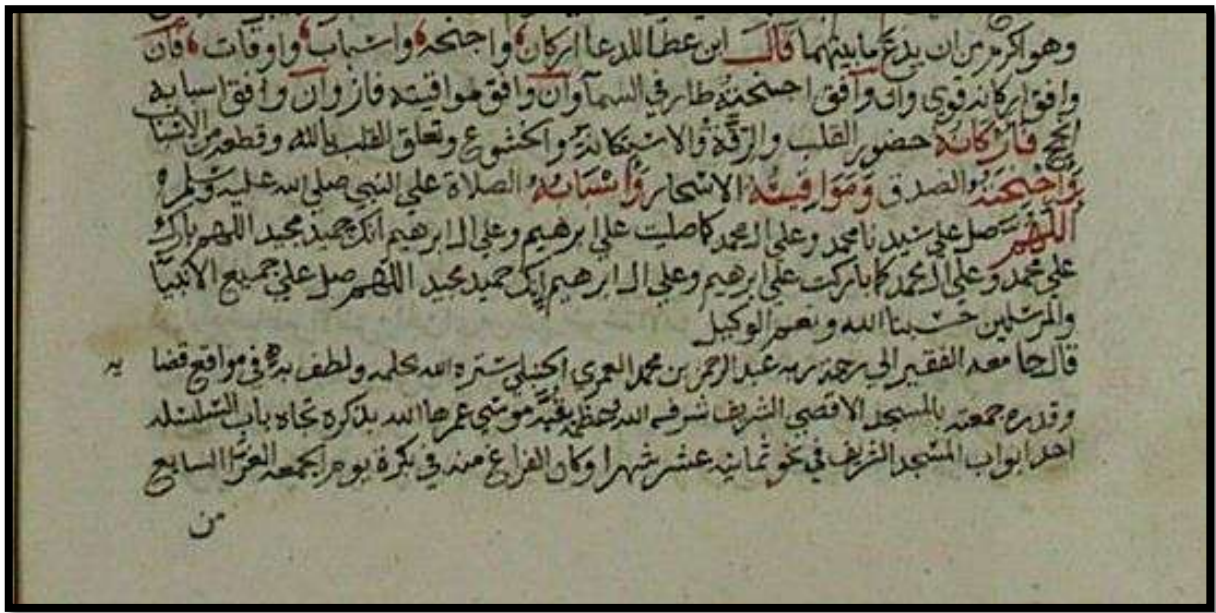 وهو اكرم من ان يدع ما بينهما قال ابن عطا للدعا اركان واجنحه واسباب واوقات فان
وافق اركانه قوي وان وافق اجنحته طار في السما وان وافق مواقيته فاز وان وافق اسبابه
انجح فاركانه حضور القلب والرقة والاستكانة والخشوع وتعلق القلب بالله وقطعه من الاسباب
واجنحته الصدق ومواقيته الاسحار واسبابه الصلاة علي النبي صلي الله عليه وسلم
اللهم صل علي سيدنا محمد وعلي ال محمد كما صليت علي ابرهيم وعلي ال ابرهيم انك حميد مجيد اللهم بارك
علي محمد وعلي ال محمد كما باركت علي ابرهيم وعلي ال ابرهيم انك حميد مجيد اللهم صل علي جميع الانبيا
والمرسلين حسبنا الله ونعم الوكيل
قال جامعه الفقير الي رحمة ربه عبد الرحمن بن محمد العمري الحنبلي ستره الله بحلمه ولطف به في مواقع قضايه
وقدره جمعته بالمسجد الاقصي الشريف شرفه الله وعظمه بقبة موسي عمرها الله بذكره تجاه باب السلسله
احد ابواب المسجد الشريف في نحو ثمانية عشر شهرا وكان الفراغ منه في بكرة يوم الجمعه الغرا السابع
من